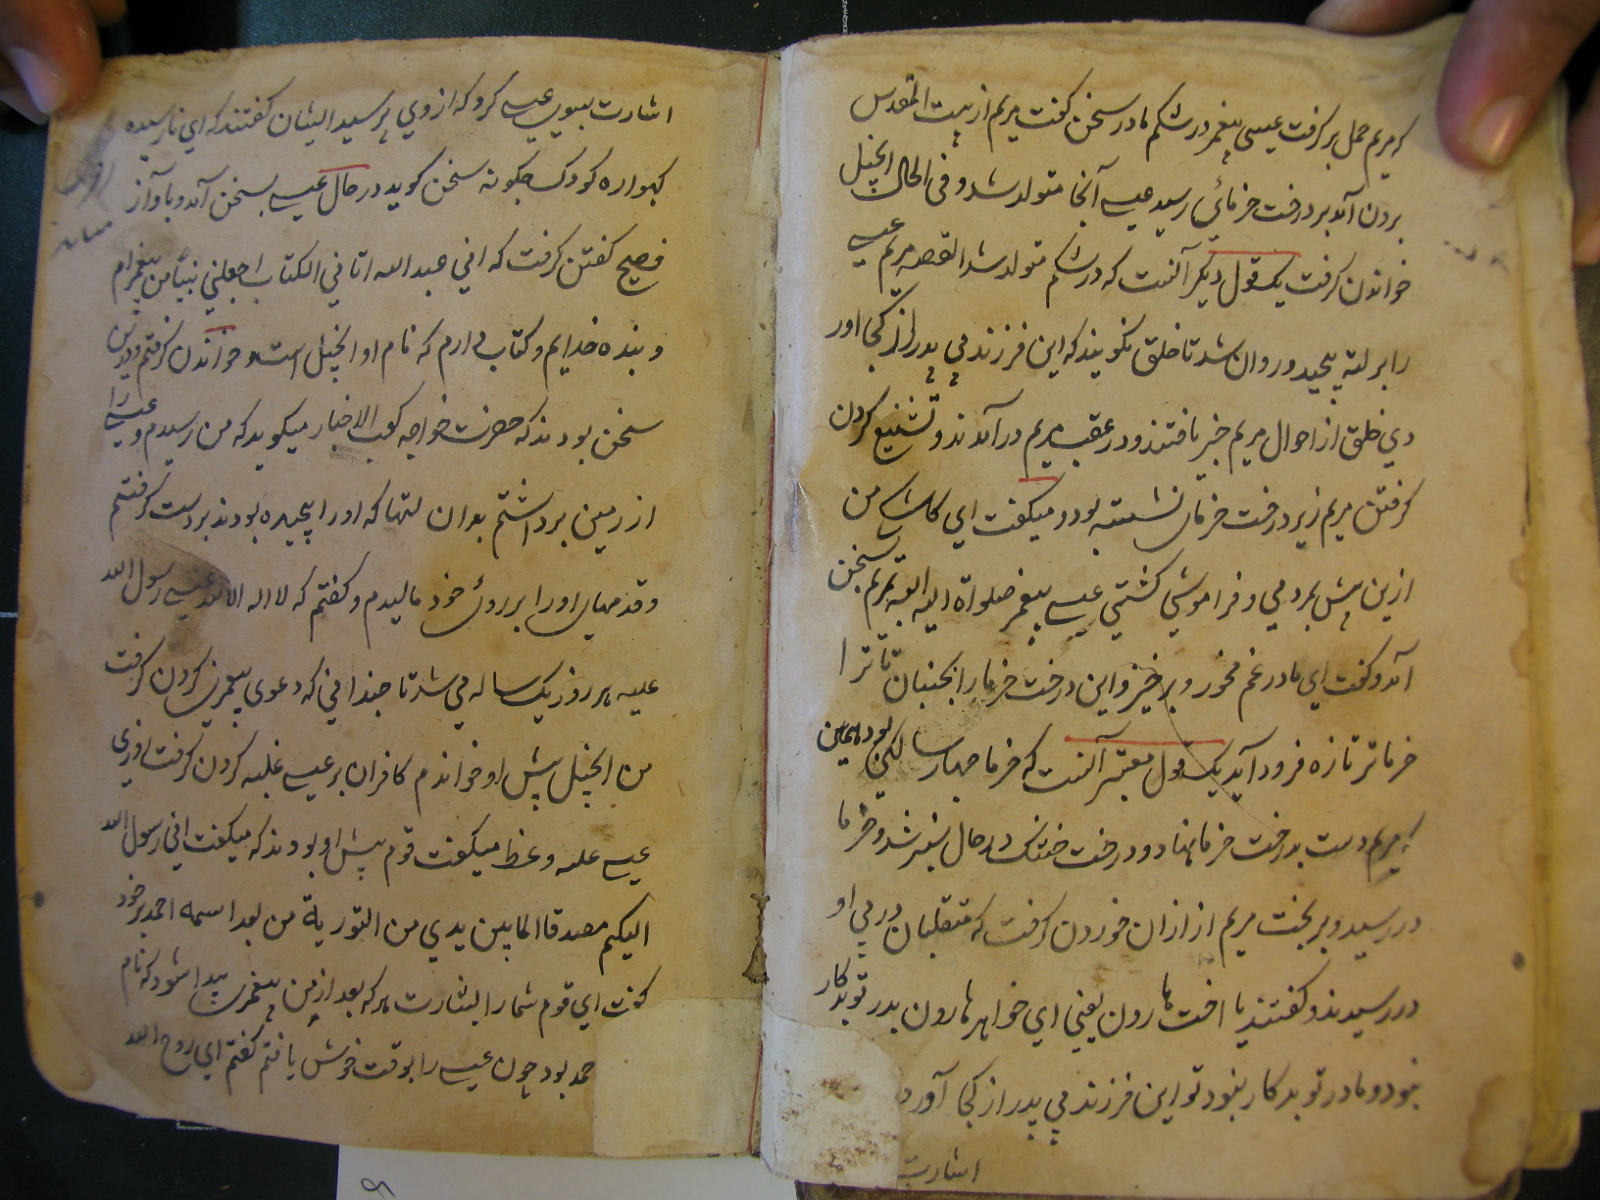 که مریم حمل بر گرفت عیسی پیغمبر در شکم مادر سخن گفت مریم از بیت المقدس
برون آمد بر درخت خرمائی رسید عیسی آنجا متولد شد و فی الحال انجیل
خواندن گرفت یک قول دیگر آنست که در شکم متولد شد القصه مریم عیسی
را بر لته پیچید و روان شد تا خلق نگویند که این فرزند بی پدر از کجا اور
دی خلق از احوال مریم خبر یافتند و در عقب مریم در آمدند و تشنیع کردن
گرفتن مریم زیر درخت خرمان نشسته بود و میگفت ای کاشکے من
ازین پیش بمردمی و فراموش گشتمی عیسی پیغمبر صلواة الیه البته بمریم سخن
آمد و گفت ای مادر غم مخور و برخیز و این درخت خرما را بجنبان تا ترا
خرما تر تازه فرود آید یک قول معتبر آنست که خرما چهار سا لکن بود همین
که مریم دست بدرخت خرما نهاد و درخت خشک در حال سبز شد و خرما
در رسید و بریخت مریم از ازان خوردن گرفت که متقلبان در پی او
در رسیدند و گفتند یا اخت هارون یعنی ای خواهر هارون پدر تو بدکار
نبود و مادر تو بدکار نبود تو این فرزند بی پدر از کجا آورد
اشارت
اشارت بسوی عیسی کرو که از وی پرسید ایشان گفتند که ای نارسیده
گهواره کودک چگونه سخن گوید در حال عیسی بسخن آمد و باواز
فصیح گفتن گرفت که انی عبد الله اتانی الکتاب اجعلنی نبیا من پیغمبرام
و بنده خدایم و کتاب دارم که نام او انجیل است و خواندن گرفتم و درین
سخن بودند که حضرت خواجه کعب الاخبار میگوید که من رسیدم و عیسی را
از زمین برداشتم بدان لتها که او را پیچیده بودند بر دست گرفتم
و قدمهای او را بر روئ خود مالیدم و گفتم که لا اله الا الله عیسی رسول الله
علیه هر روز یک ساله می شد تا چندانی که دعوی پیغمبری کردن گرفت
من انجیل پیش او خواندم کافران بر عیسی غلبه کردن گرفت روزی
عیسی علیه وعظ میگفت قوم پیش او بودند که میگفت انی رسول الله
الیکم مصدقا لما بین یدی من التوریة من بعد اسمه احمد بر خود
گفت ای قوم شما را بشارت هر که بعد از من پیغمبری پیدا شود که نام
حمد بود چون عیسی را بوقت خوش یافتم گفتم ای روح الله